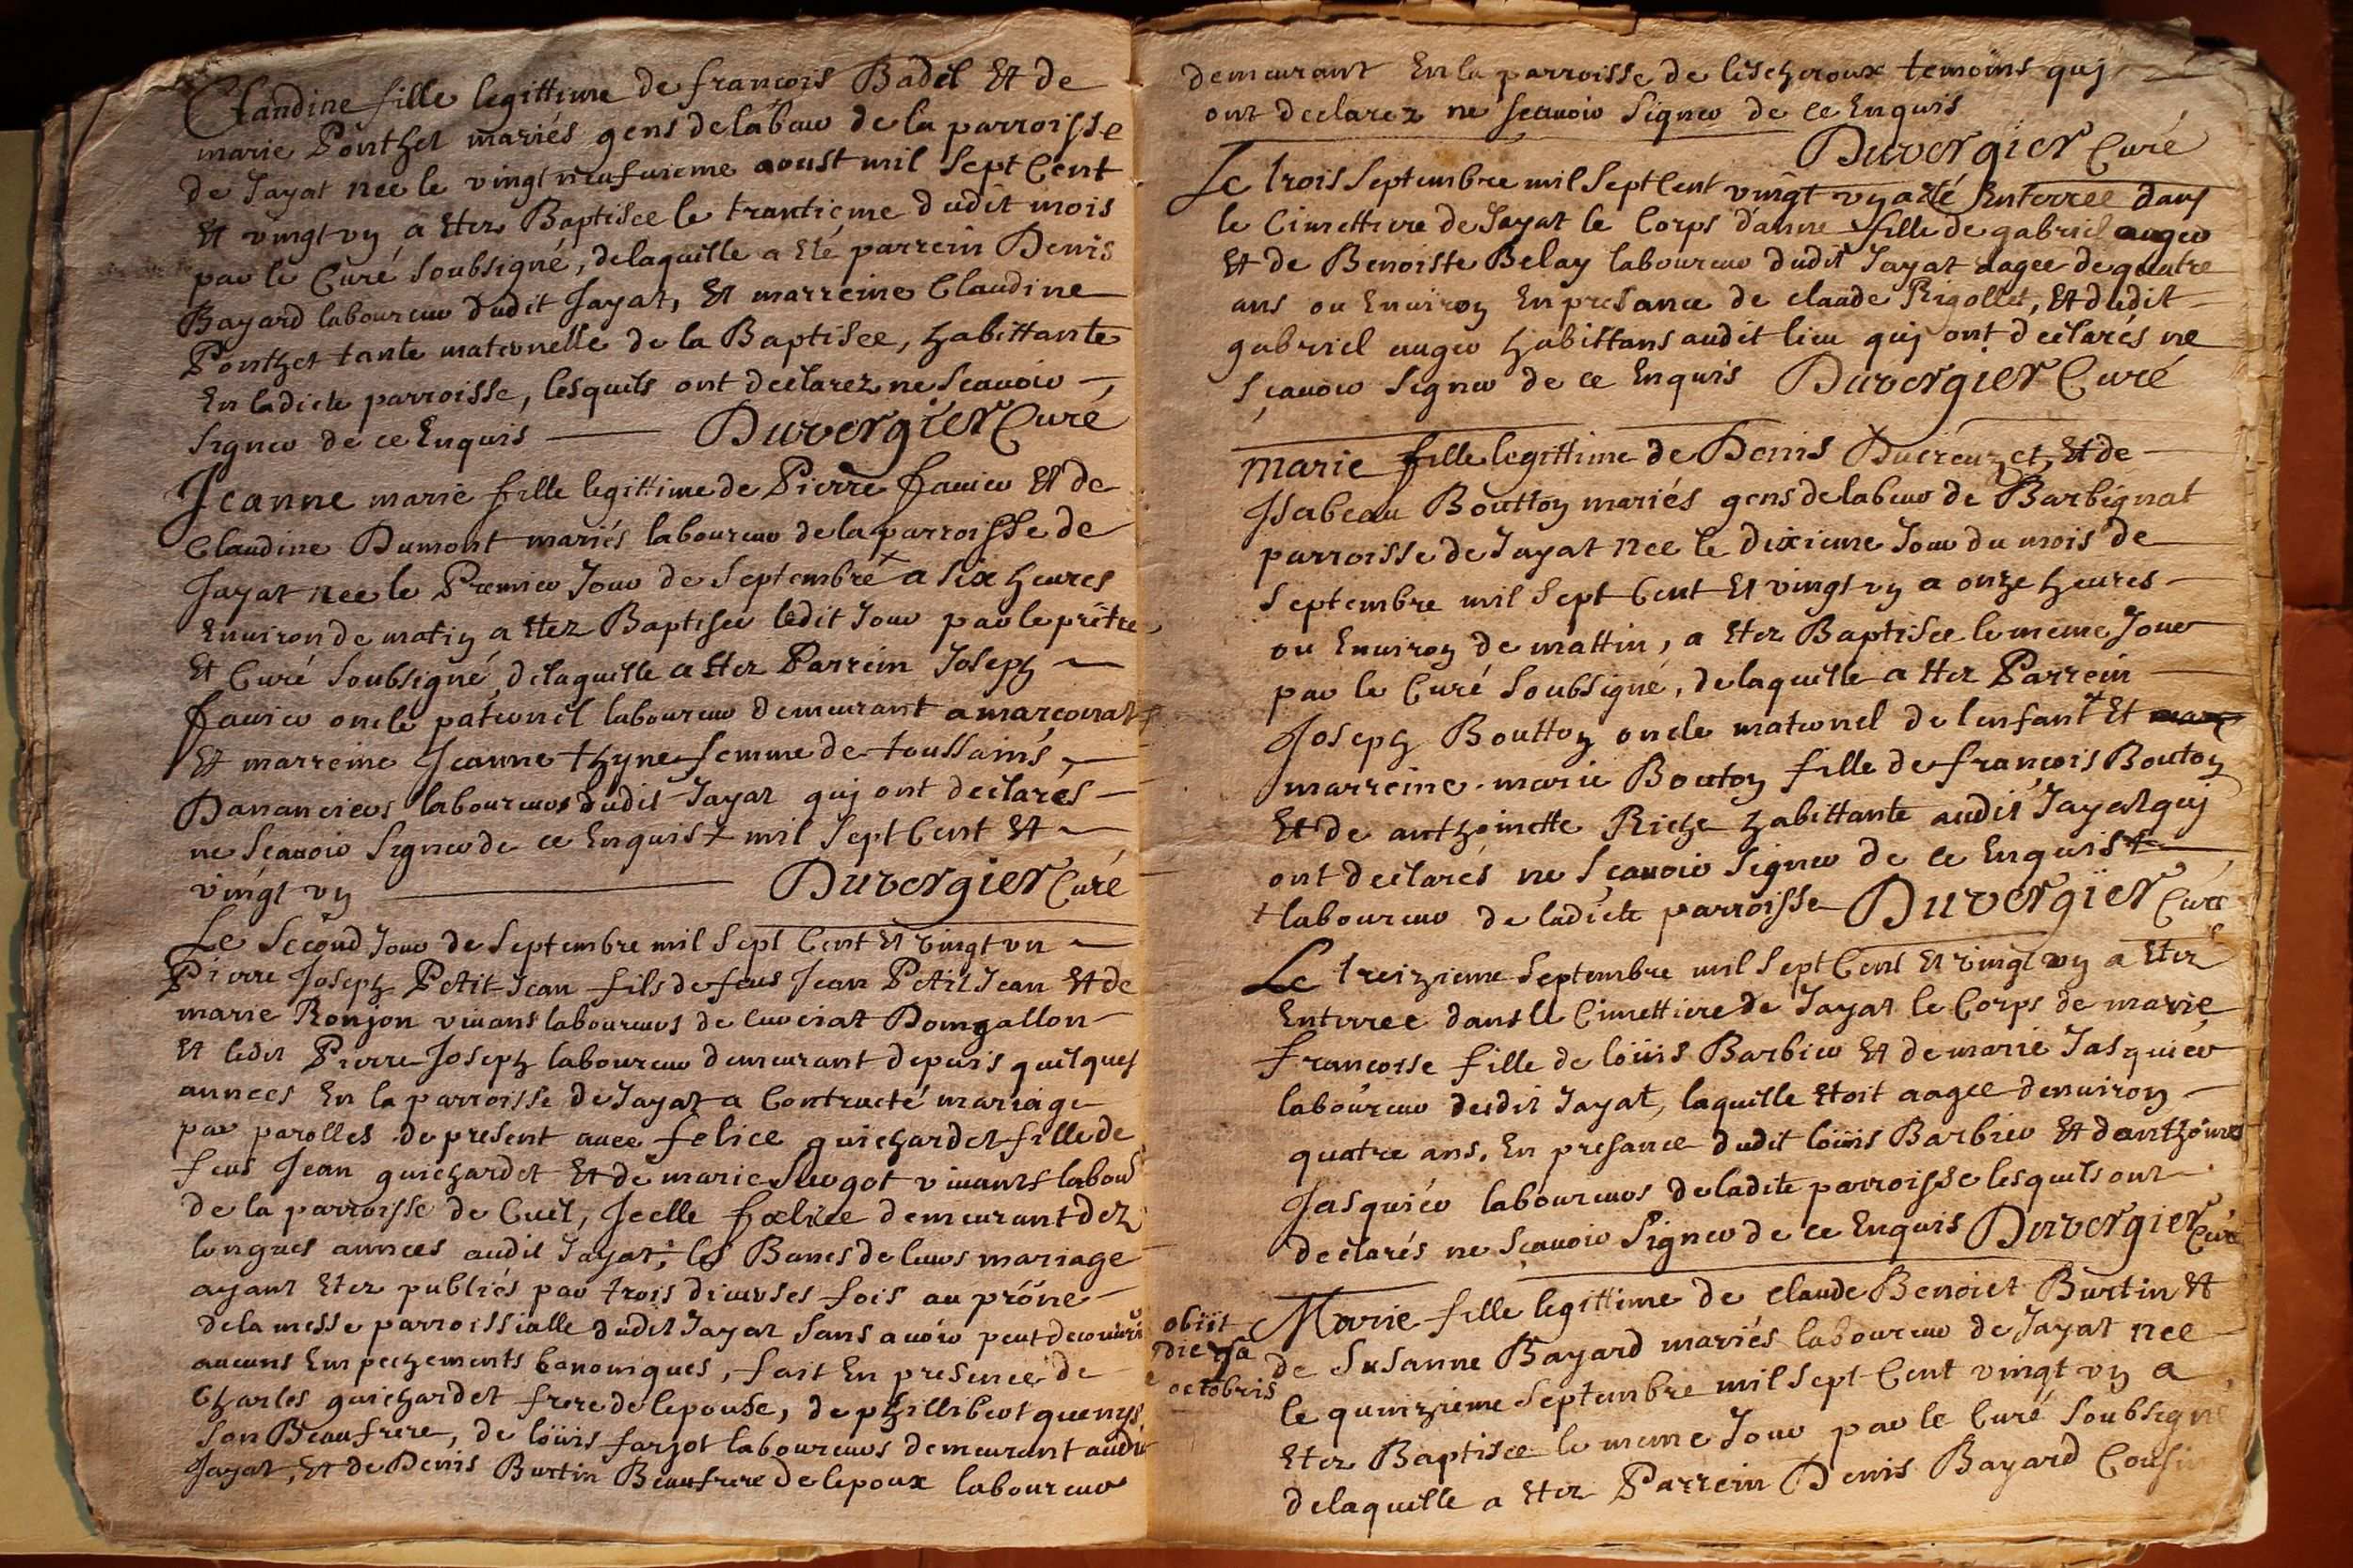 Claudine fille legittime de françois Badel Et de
marie Ponthet mariés gens de labeur de la parroisse
de Jayat née le vingt neufuieme aoust mil Sept Cent
Et vingt vn a Etez Baptisée le trantieme dudit mois
par le Curé Soubsigné, de laquelle a Eté parrein Denis
Bayard laboureur dudit Jayat, Et marreine Claudine
Ponthet tante maternelle de la Baptisée, habittante
En ladicte parroisse, lesquels ont declarez ne Scauoir
Signer de ce Enquis Duvergier Curé
Jeanne marie fille legittime de Pierre fauier Et de
Claudine Dumont mariés laboureur de la parroisse de
Jayat née le Premier Jour de Septembre + a six heures
Enuiron de matin a Etez Baptisée ledit Jour par le prêtre
Et Curé Soubsigné, de laquelle a Etez Parrein Joseph
fauier oncle paternel laboureur demeurant a marconat
Et marreine Jeanne thyne femme de toussains
Dananciers laboureurs dudit Jayat quj ont declarés
ne Scauoir Signer de ce Enquis + mil Sept Cent Et
vingt vn Duvergier Curé
Le Second Jour de Septembre mil Sept Cent Et vingt vn
Pierre Joseph Petit Jean fils de feus Jean Petit Jean Et de
marie Ronjon viuans laboureurs de Domgallon
Et ledit Pierre Joseph laboureur demeurant depuis quelques
annees En la parroisse de Jayat a Contracté mariage
par parolles de present auec felice guichardet fille de
feus Jean guichardet Et de marie viuants labour
de la parroisse de Cuet, Jcelle fœlice demeurant dez
longues annees audit Jayat; les Bancs de leurs mariage
ayant Etez publiés par trois diuerses fois au prône
de la messe parroissialle dudit Jayat Sans auoir peut decouurir
aucuns Empechements Canoniques, fait En presence de
Charles guichardet frere de lepouse, de phillibert quenys
Son Beaufrere, de loüis farjot laboureurs demeurant audit
Jayat, Et de Denis Burtin Beaufrere de lepoux laboureur
demeurant En la parroisse de lescheroux temoins quj
ont declarez ne scauoir Signer de ce Enquis
Duvergier Curé
Le trois Septembre mil Sept Cent vingt vn a été Enterree dans
le Cimettiere de Jayat le Corps danne fille de gabriel auger
Et de Benoiste Belay laboureur dudit Jayat aagee de quatre
ans ou Enuiron En presance de claude Rigollet, Et dudit
gabriel auger habittans audit lieu quj ont declarés ne
sçauoir Signer de ce Enquis Duvergier Curé
marie fille legittime de Denis Ducreuzet, Et de
Jsabeau Boutton mariés gens de labeur de Barbignat
parroisse de Jayat née le dixieme Jour du mois de
Septembre mil Sept Cent Et vingt vn a onze heures
ou Enuiron de mattin, a Etez Baptisée le meme Jour
par le Curé Soubsigné, de laquelle a Etez Parrein
Joseph Boutton oncle maternel de lenfant + Et
marreine marie Bouton fille de françois Bouton
Et de anthoinette Riche habittante audit Jayat quj
ont declarés ne Sçauoir Signer de ce Enquis
+ laboureur de ladicte parroisse Duvergier Curé
Le treizieme Septembre mil Sept Cent Et vingt vn a Etez
Enterree dans le Cimettiere de Jayat le Corps de marie
francoise fille de loüis Barbier Et de marie Jasquier
laboureur desdit Jayat, laquelle Etoit aagee denuiron
quatre ans. En presance dudit loüis Barbier Et danthoine
Jasquier laboureurs de ladite parroisse lesquels ont
declarés ne Sçauoir Signer de ce Enquis Duvergier Curé
obiit
die
octobris
Marie fille legittime de claude Benoict Burtin Et
de Susanne Bayard mariés laboureur de Jayat née
le quinzieme Septembre mil Sept Cent vingt vn a
Etez Baptisée le meme Jour par le Curé Soubsigné
de laquelle a Etez Parrein Denis Bayard Cousin